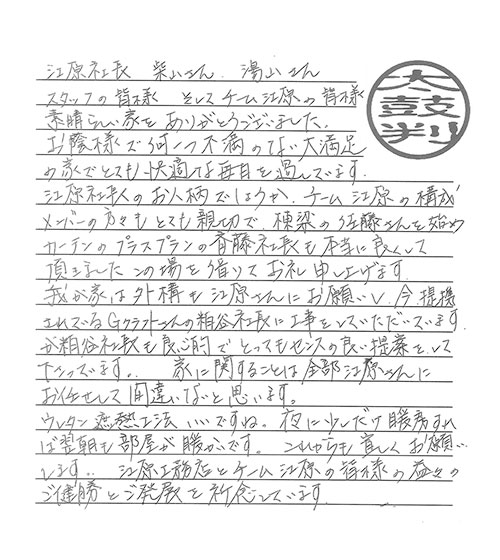 江原社長 柴山さん、湯山さん
スタッフの皆様 そしてチーム江原の皆様
素晴らしい家をありがとうございました。
お陰様で何一つ不満のない大満足
の家でとても快適な毎日を過しています。
江原社長のお人柄でしょうか、チーム江原の構成
メンバーの方々もとても親切で、棟梁の佐藤さんを始め
カーテンのプラスプランの斉藤社長も本当に良くして
頂きました この場を借りてお礼申し上げます。
我が家は外構も江原さんにお願いし、今、提携
されているGクラフトさんの粕谷社長に工事をしていただいています
が粕谷社長も良心的でとってもセンスの良い提案をして
下さっています。 家に関することは全部江原さんに
お任せして間違いないと思います。
ウレタン遮熱工法いいですね。夜に少しだけ暖房すれ
ば翌朝も部屋が暖かいです。これからも宜しくお願い
します。 江原工務店とチーム江原の皆様の益々の
ご健勝とご発展を祈念しています。
太鼓判